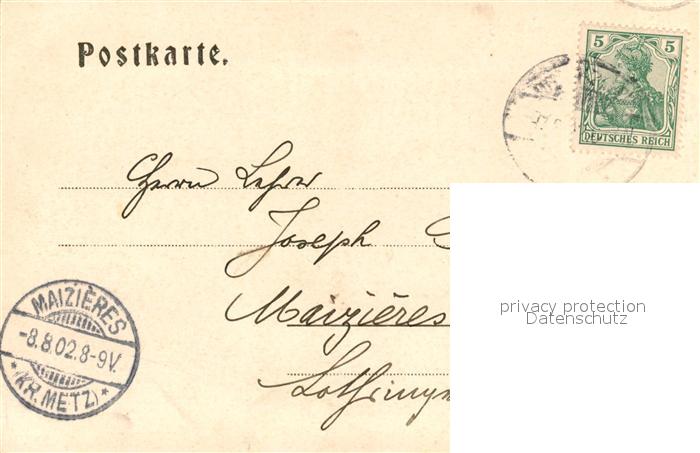 Postkarte.
5 5
DEUTSCHES REICH
Herrn Lehrer
Joseph
Maizières
Lothringen
MAIZIÈRES
-8.8.02.8-9V.
*(KR. METZ)*
privacy protection
Datenschutz